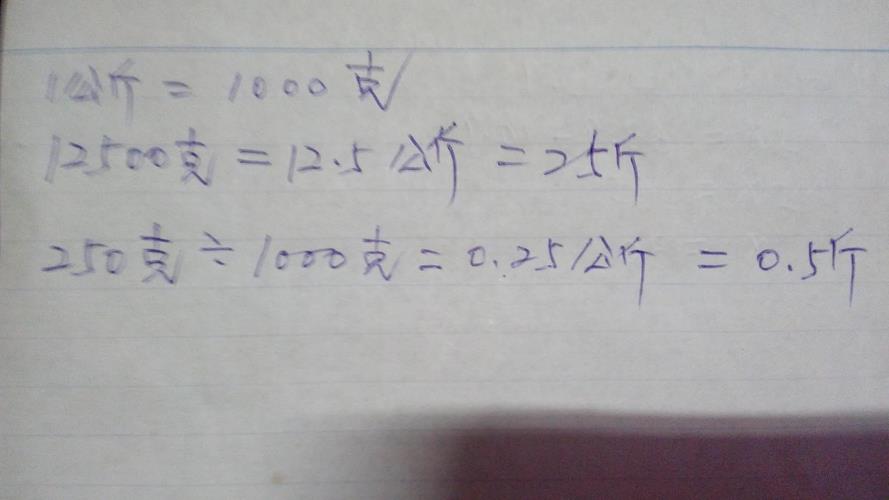 1公斤=1000克
12500克=12.5公斤=25斤
250克÷1000克=0.25公斤=0.5斤